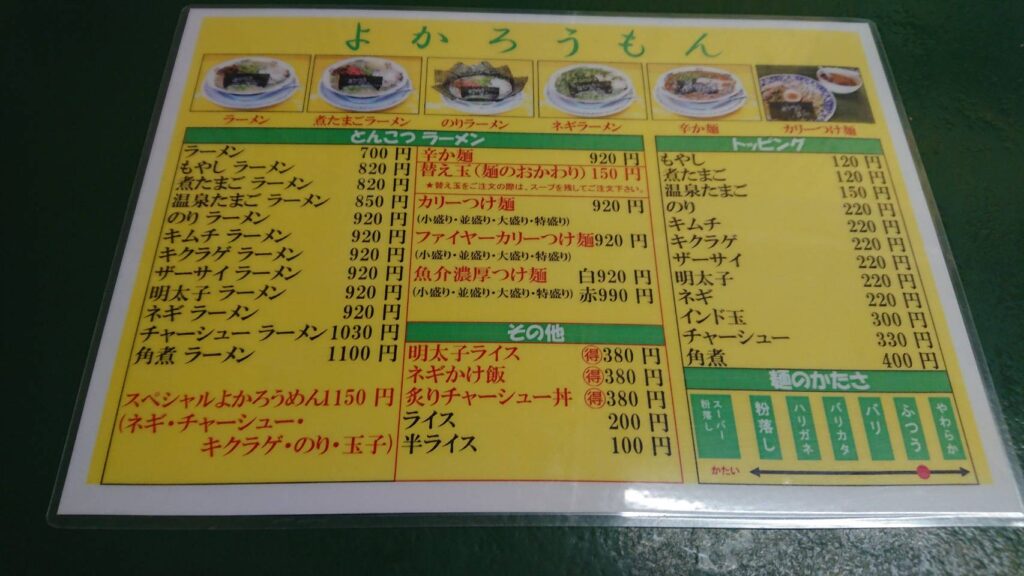 よかろうもん
ラーメン
煮たまごラーメン
のりラーメン
ネギラーメン
辛か麺
カリーつけ麺
とんこつ ラーメン
ラーメン 700 円
もやし ラーメン 820 円
煮たまご ラーメン 820 円
温泉たまご ラーメン 850 円
のり ラーメン 920 円
キムチ ラーメン 920 円
キクラゲ ラーメン 920 円
ザーサイ ラーメン 920 円
明太子 ラーメン 920 円
ネギ ラーメン 920 円
チャーシュー ラーメン 1030 円
角煮 ラーメン 1100 円
スペシャルよかろうめん1150 円
(ネギ・チャーシュー・
キクラゲ・のり・玉子)
辛か麺 920 円
替え玉(麺のおかわり) 150 円
★替え玉をご注文の際は、スープを残してご注文下さい。
カリーつけ麺 920 円
(小盛り・並盛り・大盛り・特盛り)
ファイヤーカリーつけ麺920 円
(小盛り・並盛り・大盛り・特盛り)
魚介濃厚つけ麺 白920 円
(小盛り・並盛り・大盛り・特盛り) 赤990 円
その他
明太子ライス 得380 円
ネギかけ飯 得380 円
炙りチャーシュー丼 得380 円
ライス 200 円
半ライス 100 円
トッピング
もやし 120 円
煮たまご 120 円
温泉たまご 150 円
のり 220 円
キムチ 220 円
キクラゲ 220 円
ザーサイ 220 円
明太子 220 円
ネギ 220 円
インド玉 300 円
チャーシュー 330 円
角煮 400 円
麺のかたさ
スーパー粉落し
粉落し
ハリガネ
バリカタ
バリ
ふつう
やわらか
かたい